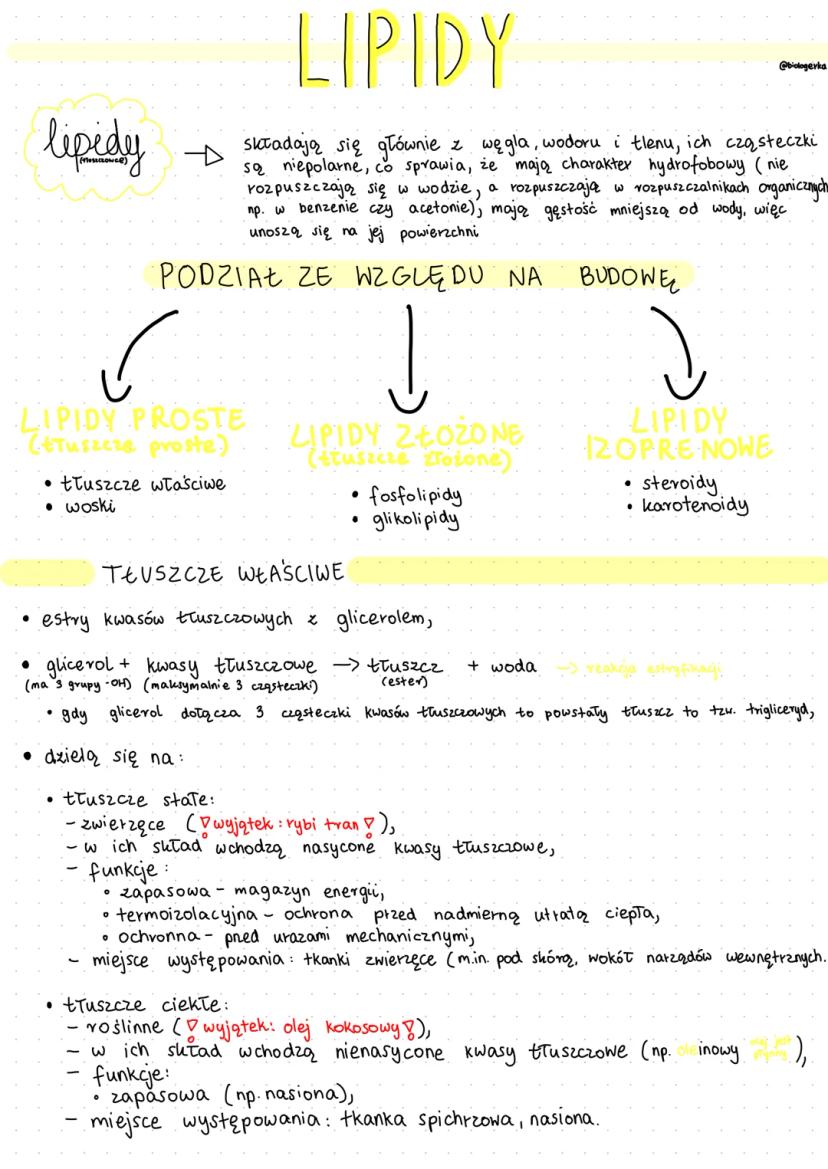 LIPIDY
@biologerka
lipidy
(tłuszczowce)
składają się głównie z węgla, wodoru i tlenu, ich cząsteczki
są niepolarne, co sprawia, że mają charakter hydrofobowy (nie
rozpuszczają się w wodzie, a rozpuszczają w rozpuszczalnikach organicznych
np. w benzenie czy acetonie), mają gęstość mniejszą od wody, więc
unoszą się na jej powierzchni
PODZIAŁ ZE WZGLĘDU NA BUDOWĘ
LIPIDY PROSTE
(tłuszcze proste)
• tłuszcze właściwe
• woski
LIPIDY ZŁOŻONE
(tłuszcze złożone)
• fosfolipidy
• glikolipidy
LIPIDY
IZOPRENOWE
• steroidy
• karotenoidy
TŁUSZCZE WŁAŚCIWE
• estry kwasów tłuszczowych z glicerolem,
• glicerol + kwasy tłuszczowe → tłuszcz + woda → reakcja estryfikacji
(ma 3 grupy -OH) (maksymalnie 3 cząsteczki) (ester)
• gdy glicerol dołącza 3 cząsteczki kwasów tłuszczowych to powstały tłuszcz to tzw. trigliceryd,
• dzielą się na:
• tłuszcze stałe:
- zwierzęce (! wyjątek: rybi tran !),
- w ich skład wchodzą nasycone kwasy tłuszczowe,
- funkcje:
• zapasowa - magazyn energii,
• termoizolacyjna - ochrona przed nadmierną utratą ciepła,
• ochronna - pned urazami mechanicznymi,
- miejsce występowania: tkanki zwierzęce (m.in. pod skórą, wokół narządów wewnętrznych.
• tłuszcze ciekłe:
- roślinne (! wyjątek: olej kokosowy !),
- w ich skład wchodzą nienasycone kwasy tłuszczowe (np. oleinowy olej jest),
- funkcje:
• zapasowa (np. nasiona),
- miejsce występowania: tkanka spichrzowa, nasiona.